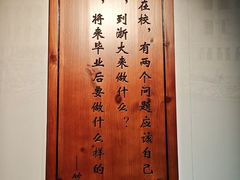 在校，有两个问题应该自己
，到浙大来做什么？
，将来毕业后要做什么样的